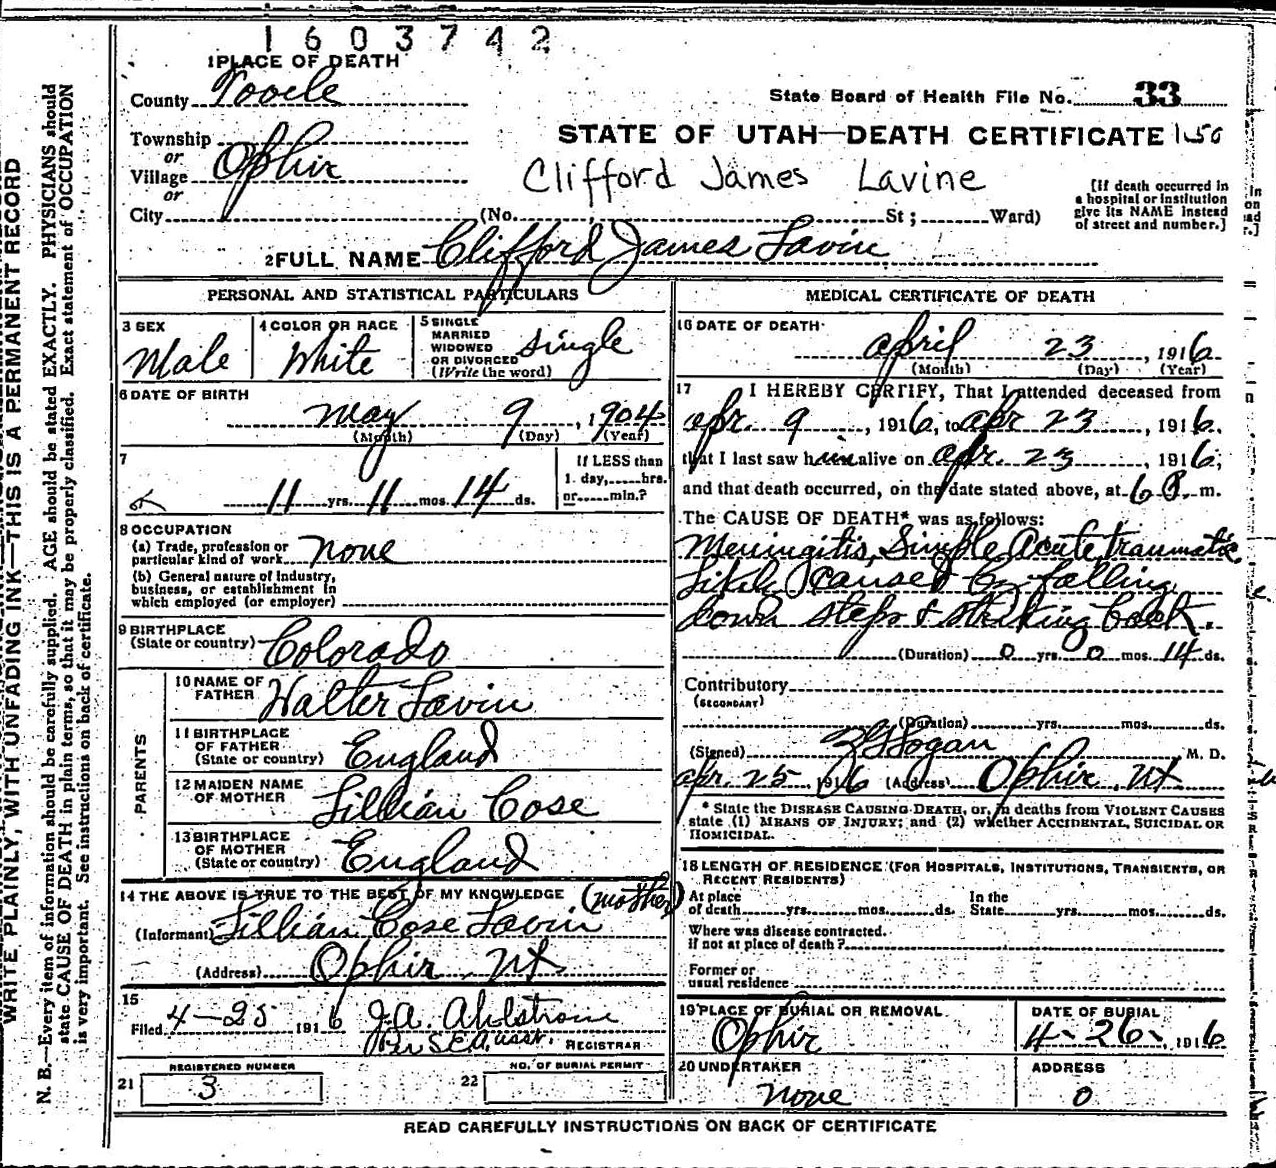 1603742
1 PLACE OF DEATH
County Tooele
State Board of Health File No. 33
Township
or
Village Ophir
or
City (No. St; Ward)
STATE OF UTAH—DEATH CERTIFICATE 150
Clifford James Lavine
[If death occurred in
a hospital or institution
give its NAME instead
of street and number.]
2 FULL NAME Clifford James Lavin
PERSONAL AND STATISTICAL PARTICULARS
3 SEX
Male
4 COLOR OR RACE
White
5 SINGLE
MARRIED
WIDOWED
OR DIVORCED
(Write the word)
Single
6 DATE OF BIRTH
May 9, 1904
(Month) (Day) (Year)
7
11 yrs. 11 mos. 14 ds.
If LESS than
1 day, hrs.
or min.?
8 OCCUPATION
(a) Trade, profession or
particular kind of work none
(b) General nature of Industry,
business, or establishment in
which employed (or employer)
9 BIRTHPLACE
(State or country) Colorado
PARENTS
10 NAME OF
FATHER Walter Lavin
11 BIRTHPLACE
OF FATHER
(State or country) England
12 MAIDEN NAME
OF MOTHER Lillian Cose
13 BIRTHPLACE
OF MOTHER
(State or country) England
14 THE ABOVE IS TRUE TO THE BEST OF MY KNOWLEDGE (mother)
(Informant) Lillian Cose Lavin
(Address) Ophir, Ut
15
Filed 4-25 1916 J.A. Ahlstrom
asst. REGISTRAR
REGISTERED NUMBER
21 3
NO. OF BURIAL PERMIT
22
MEDICAL CERTIFICATE OF DEATH
16 DATE OF DEATH
April 23, 1916
(Month) (Day) (Year)
17 I HEREBY CERTIFY, That I attended deceased from
Apr. 9, 1916, to Apr 23, 1916.
that I last saw him alive on Apr. 23, 1916,
and that death occurred, on the date stated above, at 6 P. m.
The CAUSE OF DEATH* was as follows:
Meningitis, Simple Acute traumatic
caused by falling
down steps & striking back.
(Duration) 0 yrs. 0 mos. 14 ds.
Contributory
(SECONDARY)
(Duration) yrs. mos. ds.
(Signed) Logan M. D.
Apr. 25 1916 (Address) Ophir, Ut
* State the DISEASE CAUSING DEATH, or, in deaths from VIOLENT CAUSES
state (1) MEANS OF INJURY; and (2) whether ACCIDENTAL, SUICIDAL OR
HOMICIDAL.
18 LENGTH OF RESIDENCE (FOR HOSPITALS, INSTITUTIONS, TRANSIENTS, OR
RECENT RESIDENTS)
At place
of death yrs. mos. ds.
In the
State yrs. mos. ds.
Where was disease contracted,
if not at place of death?
Former or
usual residence
19 PLACE OF BURIAL OR REMOVAL
Ophir
DATE OF BURIAL
4-26-, 1916
20 UNDERTAKER
None
ADDRESS
0
READ CAREFULLY INSTRUCTIONS ON BACK OF CERTIFICATE
WRITE PLAINLY, WITH UNFADING INK—THIS IS A PERMANENT RECORD
N. B.—Every item of information should be carefully supplied. AGE should be stated EXACTLY. PHYSICIANS should
state CAUSE OF DEATH in plain terms, so that it may be properly classified. Exact statement of OCCUPATION
is very important. See instructions on back of certificate.